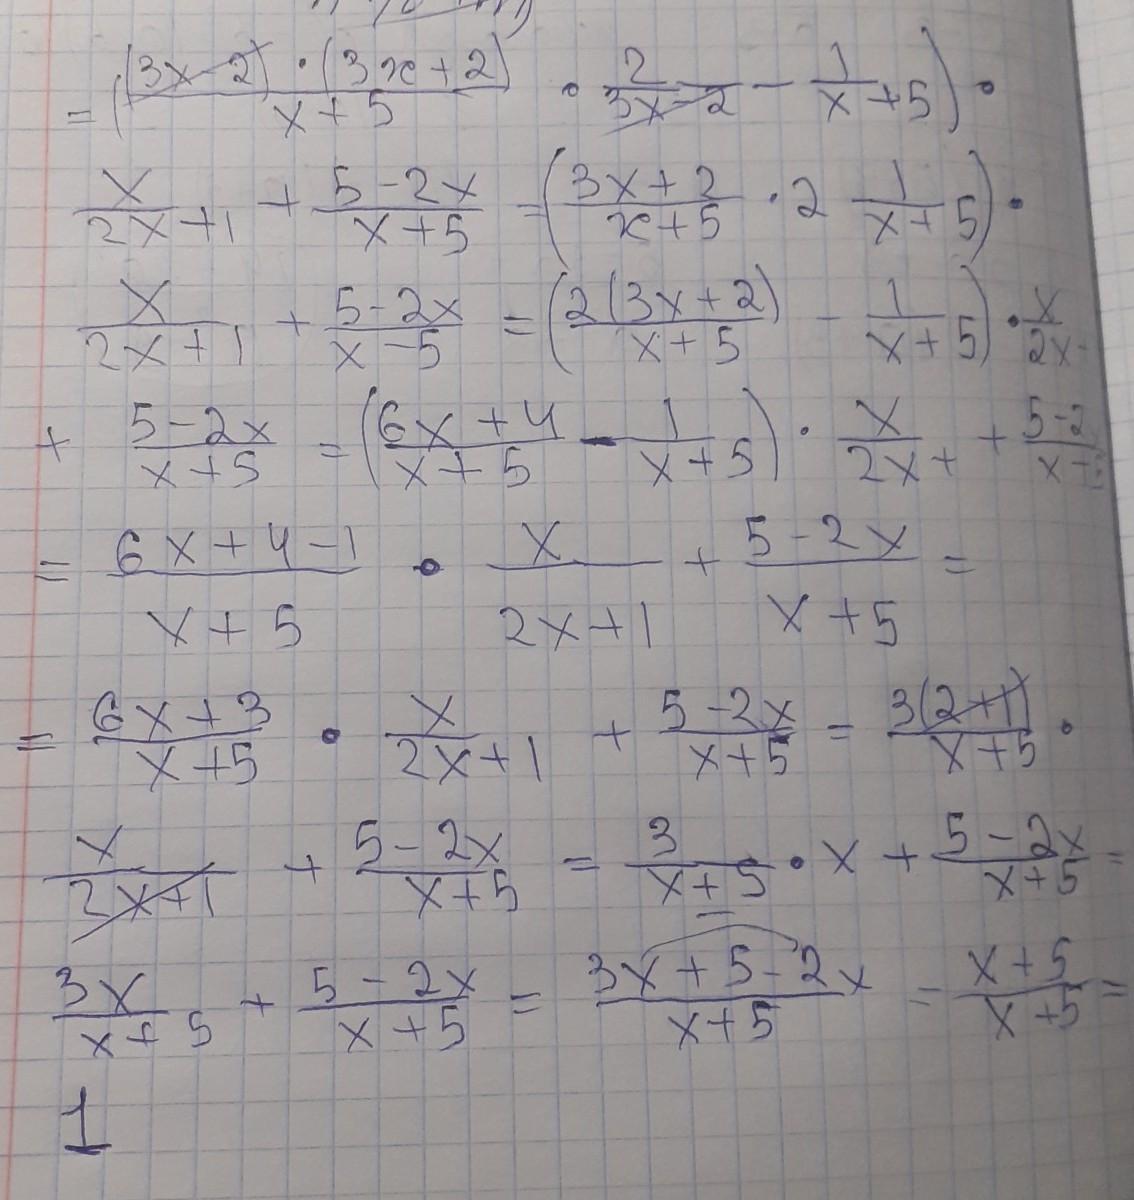 = ((3x-2)·(3x+2)/x+5 · 2/3x-2 - 1/x+5)·
x/2x+1 + 5-2x/x+5 = (3x+2/x+5 · 2 1/x+5)·
x/2x+1 + 5-2x/x-5 = (2(3x+2)/x+5 - 1/x+5)· x/2x-
+ 5-2x/x+5 = (6x+4/x+5 - 1/x+5)· x/2x+ + 5-2/x+
= 6x+4-1/x+5 · x/2x+1 + 5-2x/x+5 =
= 6x+3/x+5 · x/2x+1 + 5-2x/x+5 = 3(2+1)/x+5 ·
x/2x+1 + 5-2x/x+5 = 3/x+5 · x + 5-2x/x+5 =
3x/x+5 + 5-2x/x+5 = 3x+5-2x/x+5 = x+5/x+5 =
1